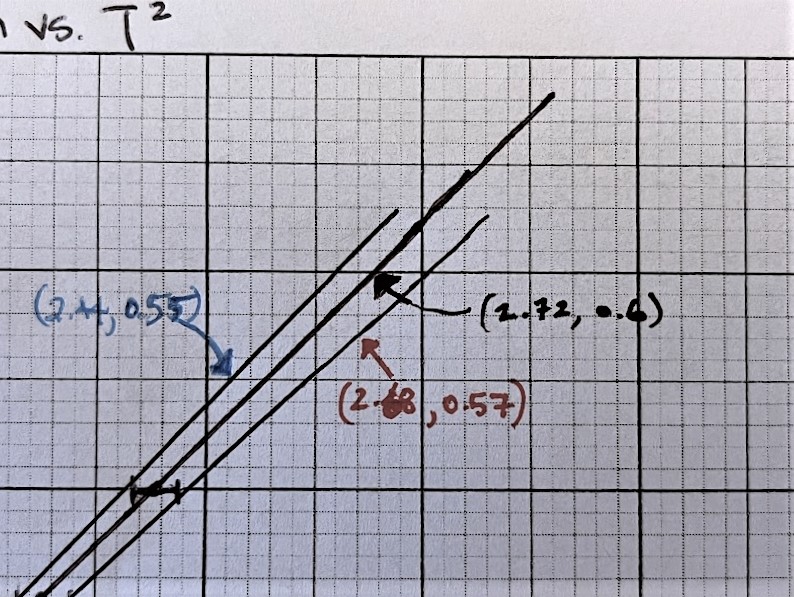 vs. T²
(2.44, 0.55)
(2.72, 0.6)
(2.68, 0.57)